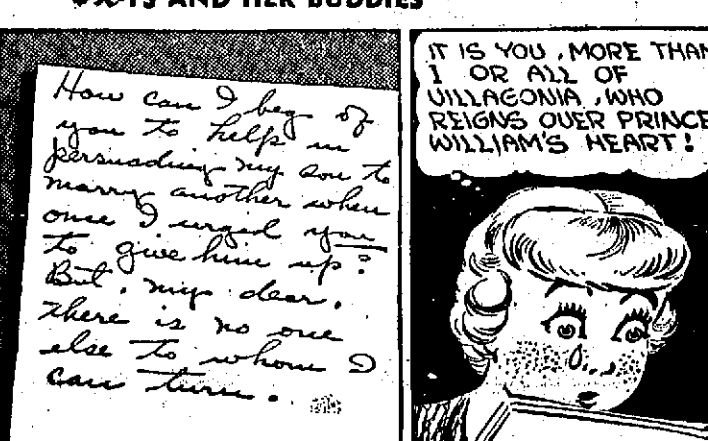 AND HER BUDDIES
How can I beg of
you to help in
persuading my son to
marry another when
once I urged you
to give him up?
But, my dear,
there is no one
else to whom I
can turn.
IT IS YOU, MORE THAN
I OR ALL OF
VILLAGONIA, WHO
REIGNS OVER PRINCE
WILLIAM'S HEART!